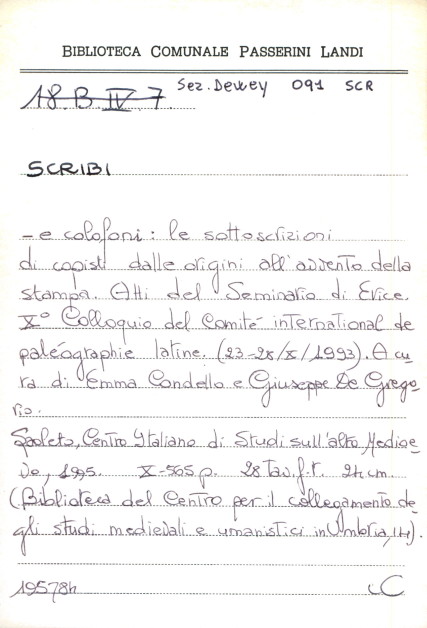 BIBLIOTECA COMUNALE PASSERINI LANDI
18.B.IV.7. Sez. Dewey 091 SCR
SCRIBI
- e colofoni: le sottoscrizioni
di copisti dalle origini all'avvento della
stampa. Atti del Seminario di Erice.
X° Colloquio del Comité international de
paléographie latine. (23-28/X/1993). A cu
ra di Emma Condello e Giuseppe De Grego
rio.
Spoleto, Centro Italiano di Studi sull'alto Medioe
vo, 1995. X-565 p. 28 tav. f.t. 24 cm.
(Biblioteca del Centro per il collegamento de
gli studi medievali e umanistici in Umbria, 14).
195784 C